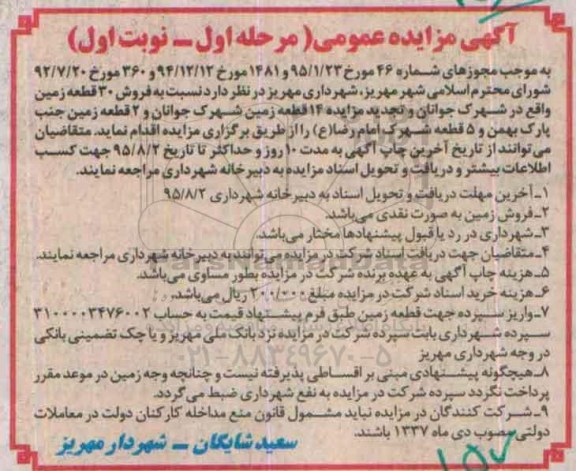 آگهی مزایده عمومی( مرحله اول ــ نوبت اول)
به موجب مجوزهای شماره ۴۶ مورخ ۹۵/۱/۲۳ و ۱۴۸۱ مورخ ۹۴/۱۲/۱۲ و ۳۶۰ مورخ ۹۲/۷/۲۰
شورای محترم اسلامی شهر مهریز، شهرداری مهریز در نظر دارد نسبت به فروش ۳۰ قطعه زمین
واقع در شهرک جوانان و تجدید مزایده ۱۴ قطعه زمین شهرک جوانان و ۲ قطعه زمین جنب
پارک بهمن و ۵ قطعه شهرک امام رضا(ع) را از طریق برگزاری مزایده اقدام نماید. متقاضیان
می‌توانند از تاریخ آخرین چاپ آگهی به مدت ۱۰ روز و حداکثر تا تاریخ ۹۵/۸/۲ جهت کسب
اطلاعات بیشتر و دریافت و تحویل اسناد مزایده به دبیرخانه شهرداری مراجعه نمایند.
۱ــ آخرین مهلت دریافت و تحویل اسناد به دبیرخانه شهرداری ۹۵/۸/۲
۲ــ فروش زمین به صورت نقدی می‌باشد.
۳ــ شهرداری در رد یا قبول پیشنهادها مختار می‌باشد.
۴ــ متقاضیان جهت دریافت اسناد شرکت در مزایده می‌توانند به دبیرخانه شهرداری مراجعه نمایند.
۵ــ هزینه چاپ آگهی به عهده برنده شرکت در مزایده بطور مساوی می‌باشد.
۶ــ هزینه خرید اسناد شرکت در مزایده مبلغ ۲۰۰/۰۰۰ ریال می‌باشد.
۷ــ واریز سپرده جهت قطعه زمین طبق فرم پیشنهاد قیمت به حساب ۳۱۰۰۰۰۳۴۷۶۰۰۲
سپرده شهرداری بابت سپرده شرکت در مزایده نزد بانک ملی مهریز و یا چک تضمینی بانکی
در وجه شهرداری مهریز
۸ــ هیچگونه پیشنهادی مبنی بر اقساطی پذیرفته نیست و چنانچه وجه زمین در موعد مقرر
پرداخت نگردد سپرده شرکت در مزایده به نفع شهرداری ضبط می‌گردد.
۹ــ شرکت کنندگان در مزایده نباید مشمول قانون منع مداخله کارکنان دولت در معاملات
دولتی مصوب دی ماه ۱۳۳۷ باشند.
سعید شایگان ــ شهردار مهریز
۰۲۱-۸۸۳۴۹۶۷۰-۵